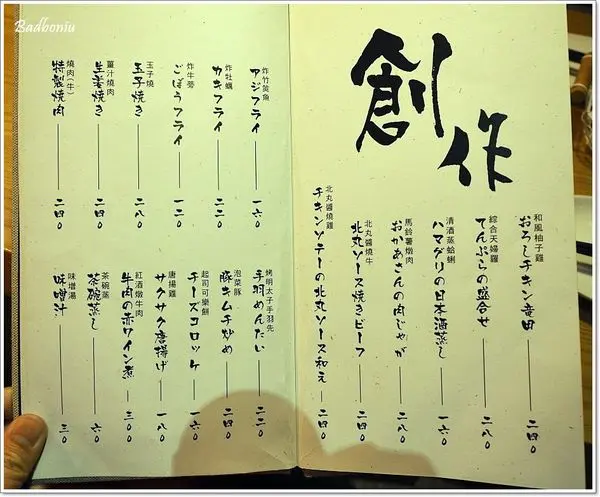 Badboniu
創作
和風柚子雞
おろしチキン竜田 二四〇
綜合天婦羅
てんぷらの盛合せ 二八〇
清酒蒸蛤蜊
ハマグリの日本酒蒸し 二四〇
馬鈴薯燉肉
おかあさんの肉じゃが 二八〇
北丸醬燒牛
北丸ソース焼きビーフ 二四〇
北丸醬燒雞
チキンソテーの北丸ソース和え 二四〇
炸竹莢魚
アジフライ 一六〇
炸牡蠣
カキフライ 二二〇
炸牛蒡
ごぼうフライ 一二〇
玉子燒
玉子焼き 二八〇
薑汁燒肉
生姜焼き 二四〇
燒肉(牛)
特製焼肉 二四〇
烤明太子手羽先
手羽めんたい 二二〇
泡菜豚
豚キムチ炒め 二四〇
起司可樂餅
チーズコロッケ 一六〇
唐揚雞
サクサク唐揚げ 一八〇
紅酒燉牛肉
牛肉の赤ワイン煮 三〇〇
茶碗蒸
茶碗蒸し 六〇
味增湯
味噌汁 三〇